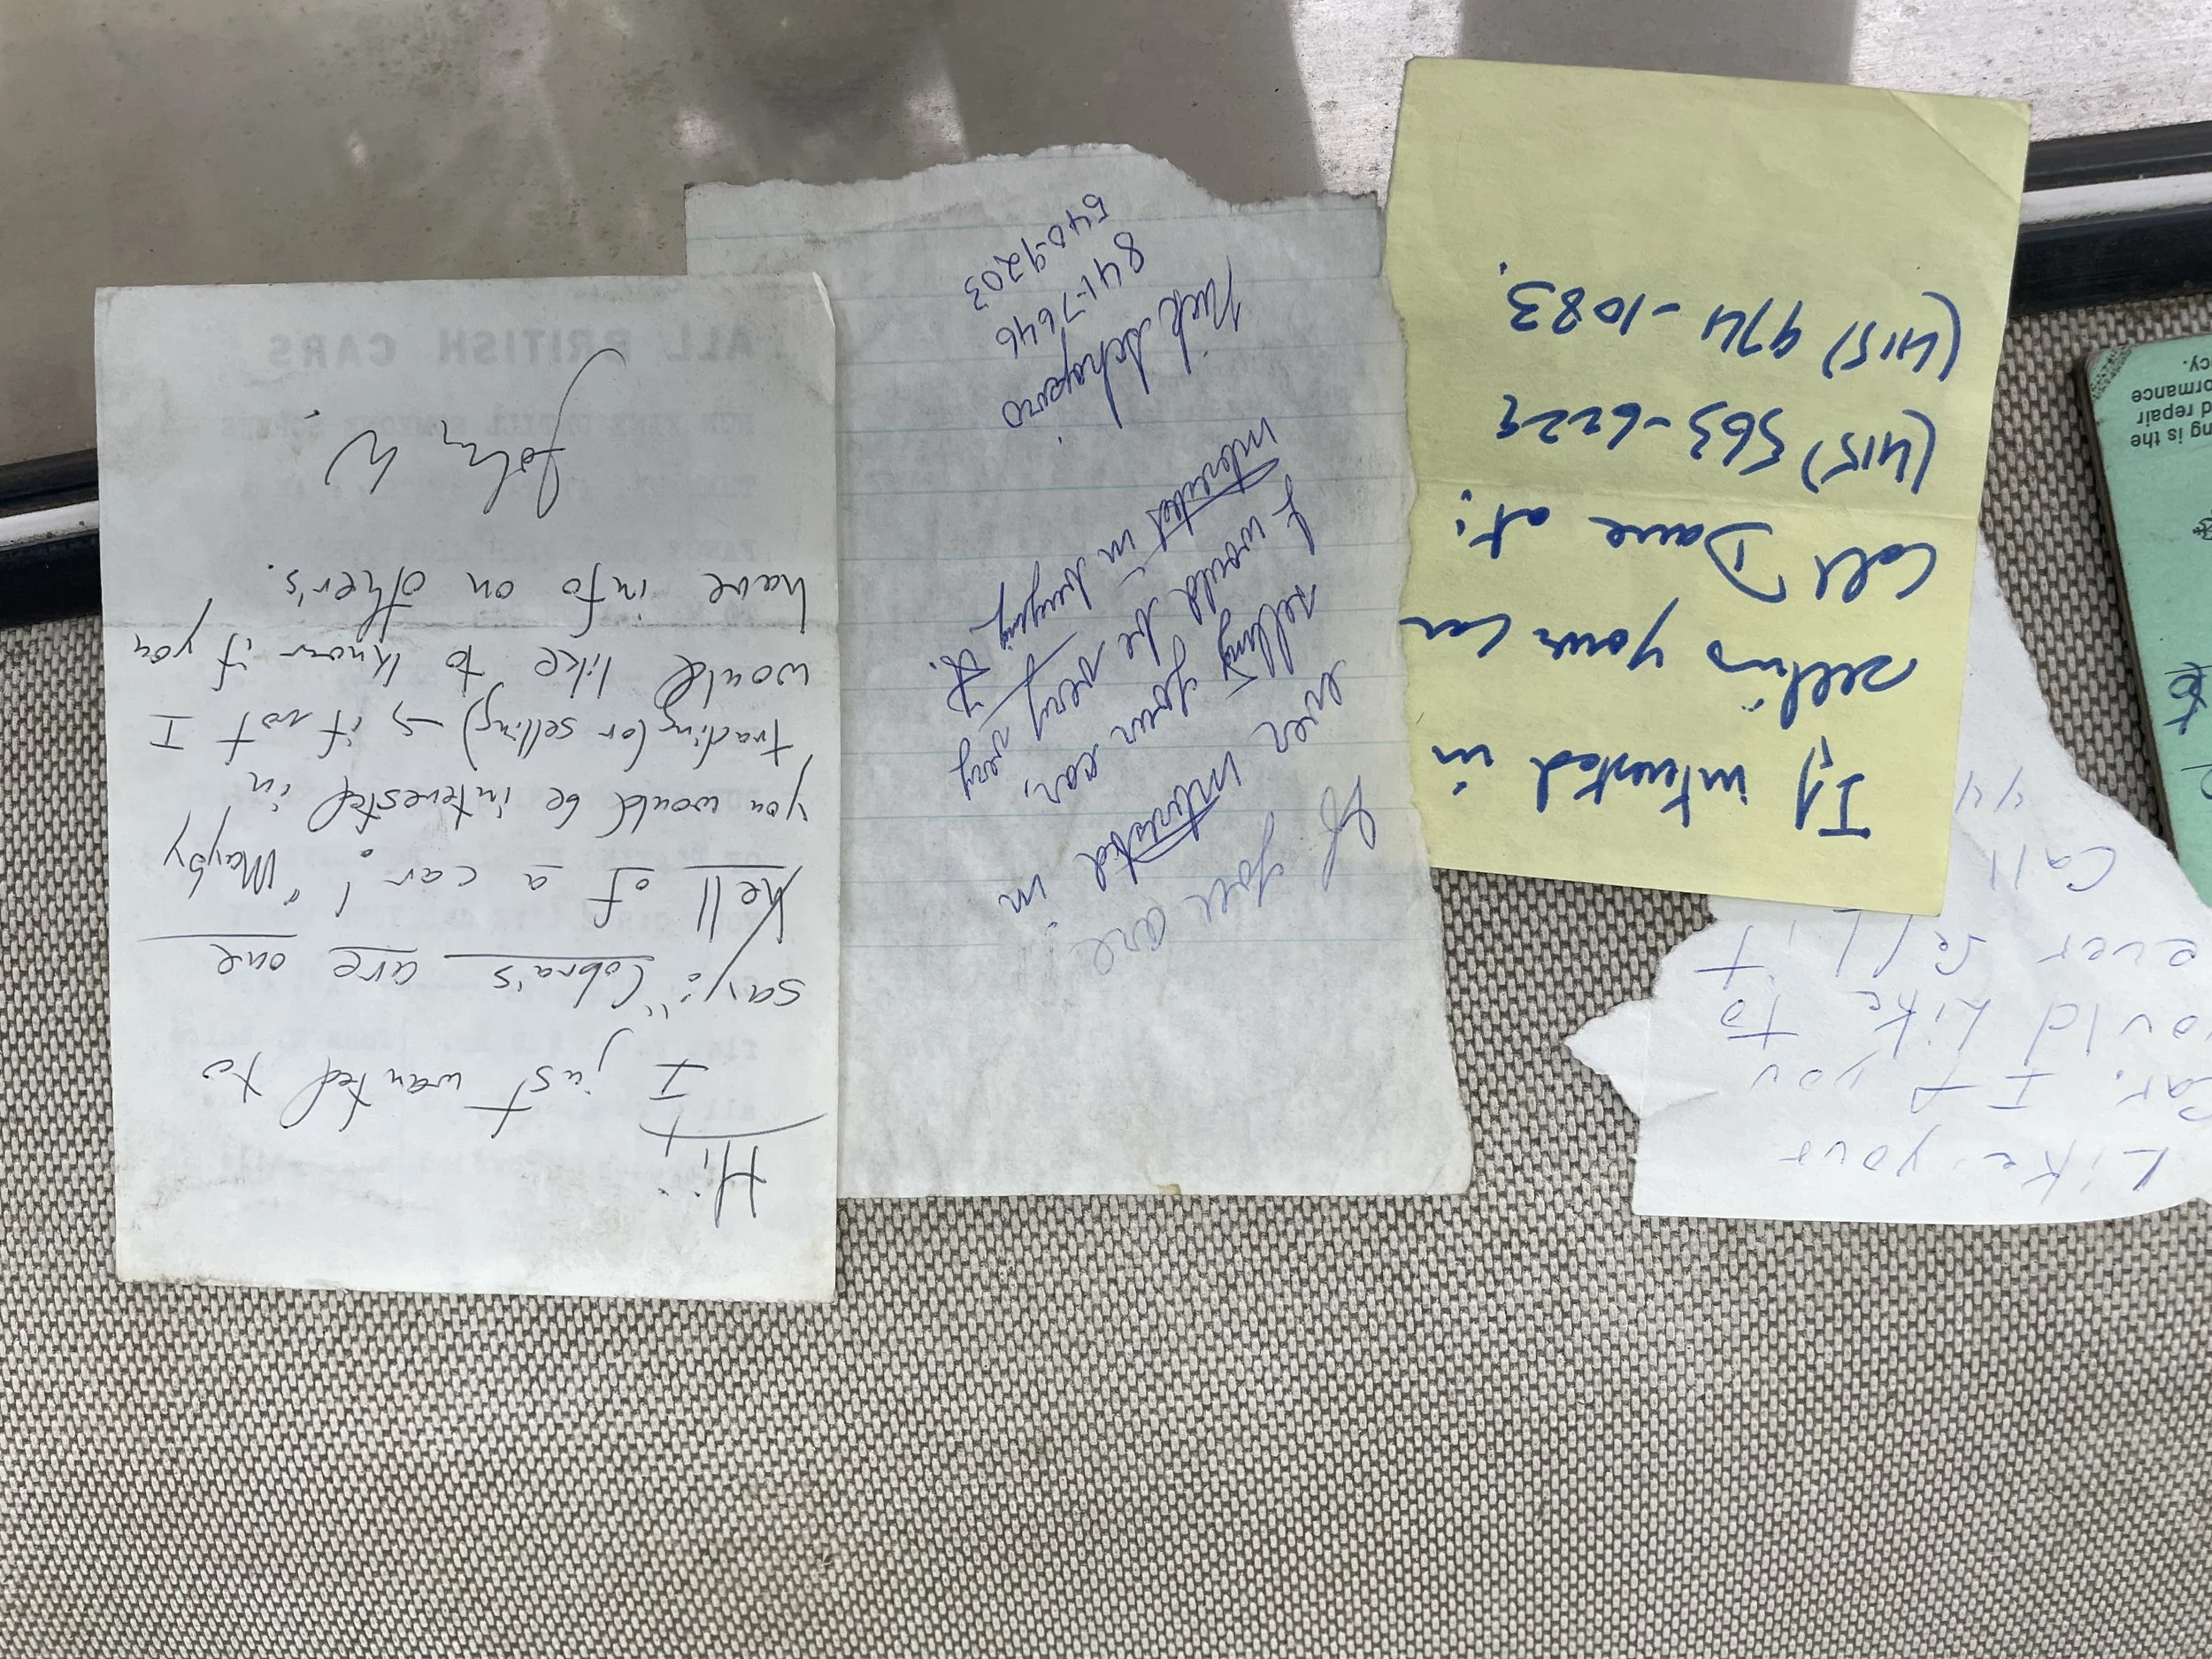 Hi,
I just wanted to
say: "Cobra's are one
Hell of a car! "Mayby
you would be interested in
trading (or selling) → if not I
would like to know if you
have info on other's.
John W.
ALL BRITISH CARS
If you are
ever interested in
selling your car,
I would be very very
interested in buying it.
Nick Schapiro
841-7646
540-9203
If interested in
selling your car
call Dave at:
(415) 563-6229
(415) 974-1083.
Like your
car. If you
ould Like to
ever sell it
Call
44
ng is the
d repair
ormance
cy.